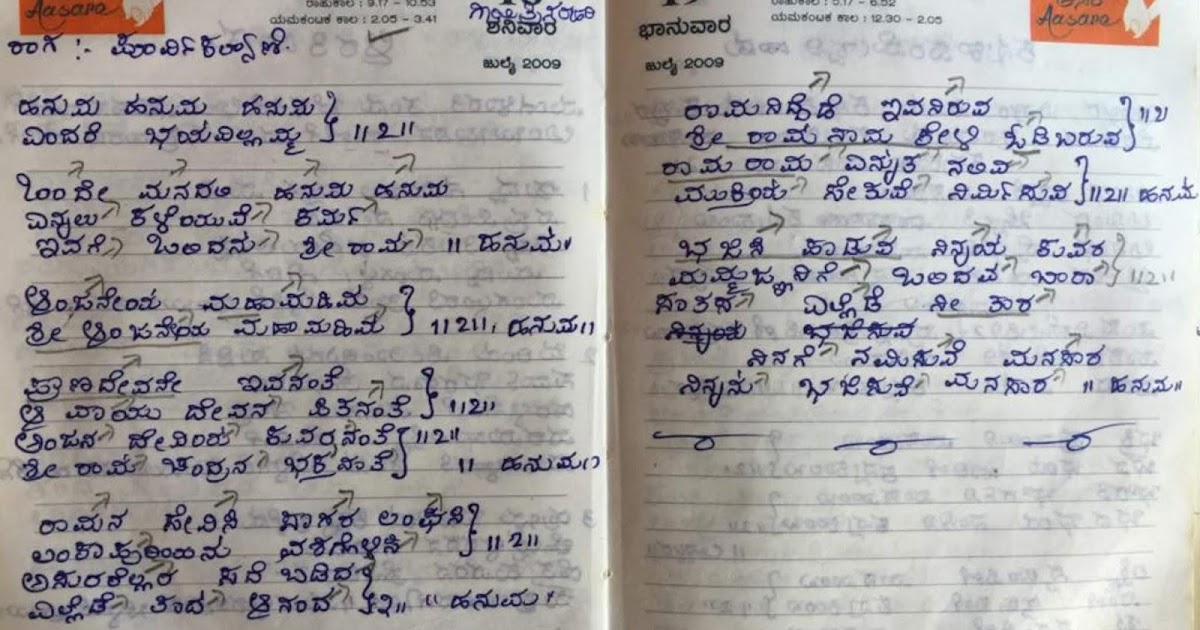 Aasara
ರಾಹುಕಾಲ : 9.17 - 10.53
ಯಮಕಂಟಕ ಕಾಲ : 2.05 - 3.41
ಶನಿವಾರ
ಜುಲೈ 2009
ರಾಗ :- ಪೂರ್ವಿಕಲ್ಯಾಣಿ.
ಹನುಮ ಹನುಮ ಹನುಮ
ಎಂದರೆ ಭಯವಿಲ್ಲಮ್ಮ ||2||
ಒಂದೇ ಮನದಲಿ ಹನುಮ ಹನುಮ
ಎನ್ನಲು ಕಳೆಯುವೆ ಕರ್ಮ
ಇವಗೆ ಒಲಿದನು ಶ್ರೀ ರಾಮ || ಹನುಮ||
ಆಂಜನೇಯ ಮಹಾಮಹಿಮ
ಶ್ರೀ ಆಂಜನೇಯ ಮಹಾಮಹಿಮ ||2|| ಹನುಮ||
ಪ್ರಾಣದೇವನೇ ಇವನಂತೆ
ಆ ವಾಯು ದೇವನ ಸುತನಂತೆ ||2||
ಅಂಜನ ದೇವಿಯ ಕುವರನಂತೆ ||2||
ಶ್ರೀ ರಾಮ ಚಂದ್ರನ ಭಕ್ತನಾತೆ || ಹನುಮ||
ರಾಮನ ಸೇವಿಸಿ ಸಾಗರ ಲಂಘಿಸಿ
ಲಂಕಾಪುರಿಯನು ವಶಗೊಳ್ಳಿಸಿ ||2||
ಅಸುರರೆಲ್ಲರ ಸದೆ ಬಡಿದ
ಎಲ್ಲೆಡೆ ತಂದ ಆನಂದ ||2|| "ಹನುಮ"
ಭಾನುವಾರ
ಯಮಕಂಟಕ ಕಾಲ : 12.30 - 2.05
Aasara
ಜುಲೈ 2009
ರಾಮನಿದ್ದೆಡೆ ಇವನಿರುವ
ಶ್ರೀ ರಾಮ ನಾಮ ಕೇಳಿ ಓಡಿಬರುವ ||2
ರಾಮ ರಾಮ ಎನ್ನುತ ನಲಿವ
ಮುಕ್ತಿಯ ಸೇತುವೆ ನಿರ್ಮಿಸುವ ||2|| ಹನುಮ
ಭಜಿಸಿ ಹಾಡುವ ನಿನ್ನಯ ಕುವರ
ಮಮ್ಮಜ್ಜನಿಗೆ ಒಲಿದವ ಬಾರಾ ||2||
ಎಲ್ಲೆಡೆ
ಭಜಿಸುವ
ನಿನಗೆ ನಮಿಸುವೆ ಮನಸಾರ
ನಿನ್ನನು ಭಜಿಸುವೆ ಮನಸಾರ || ಹನುಮ||